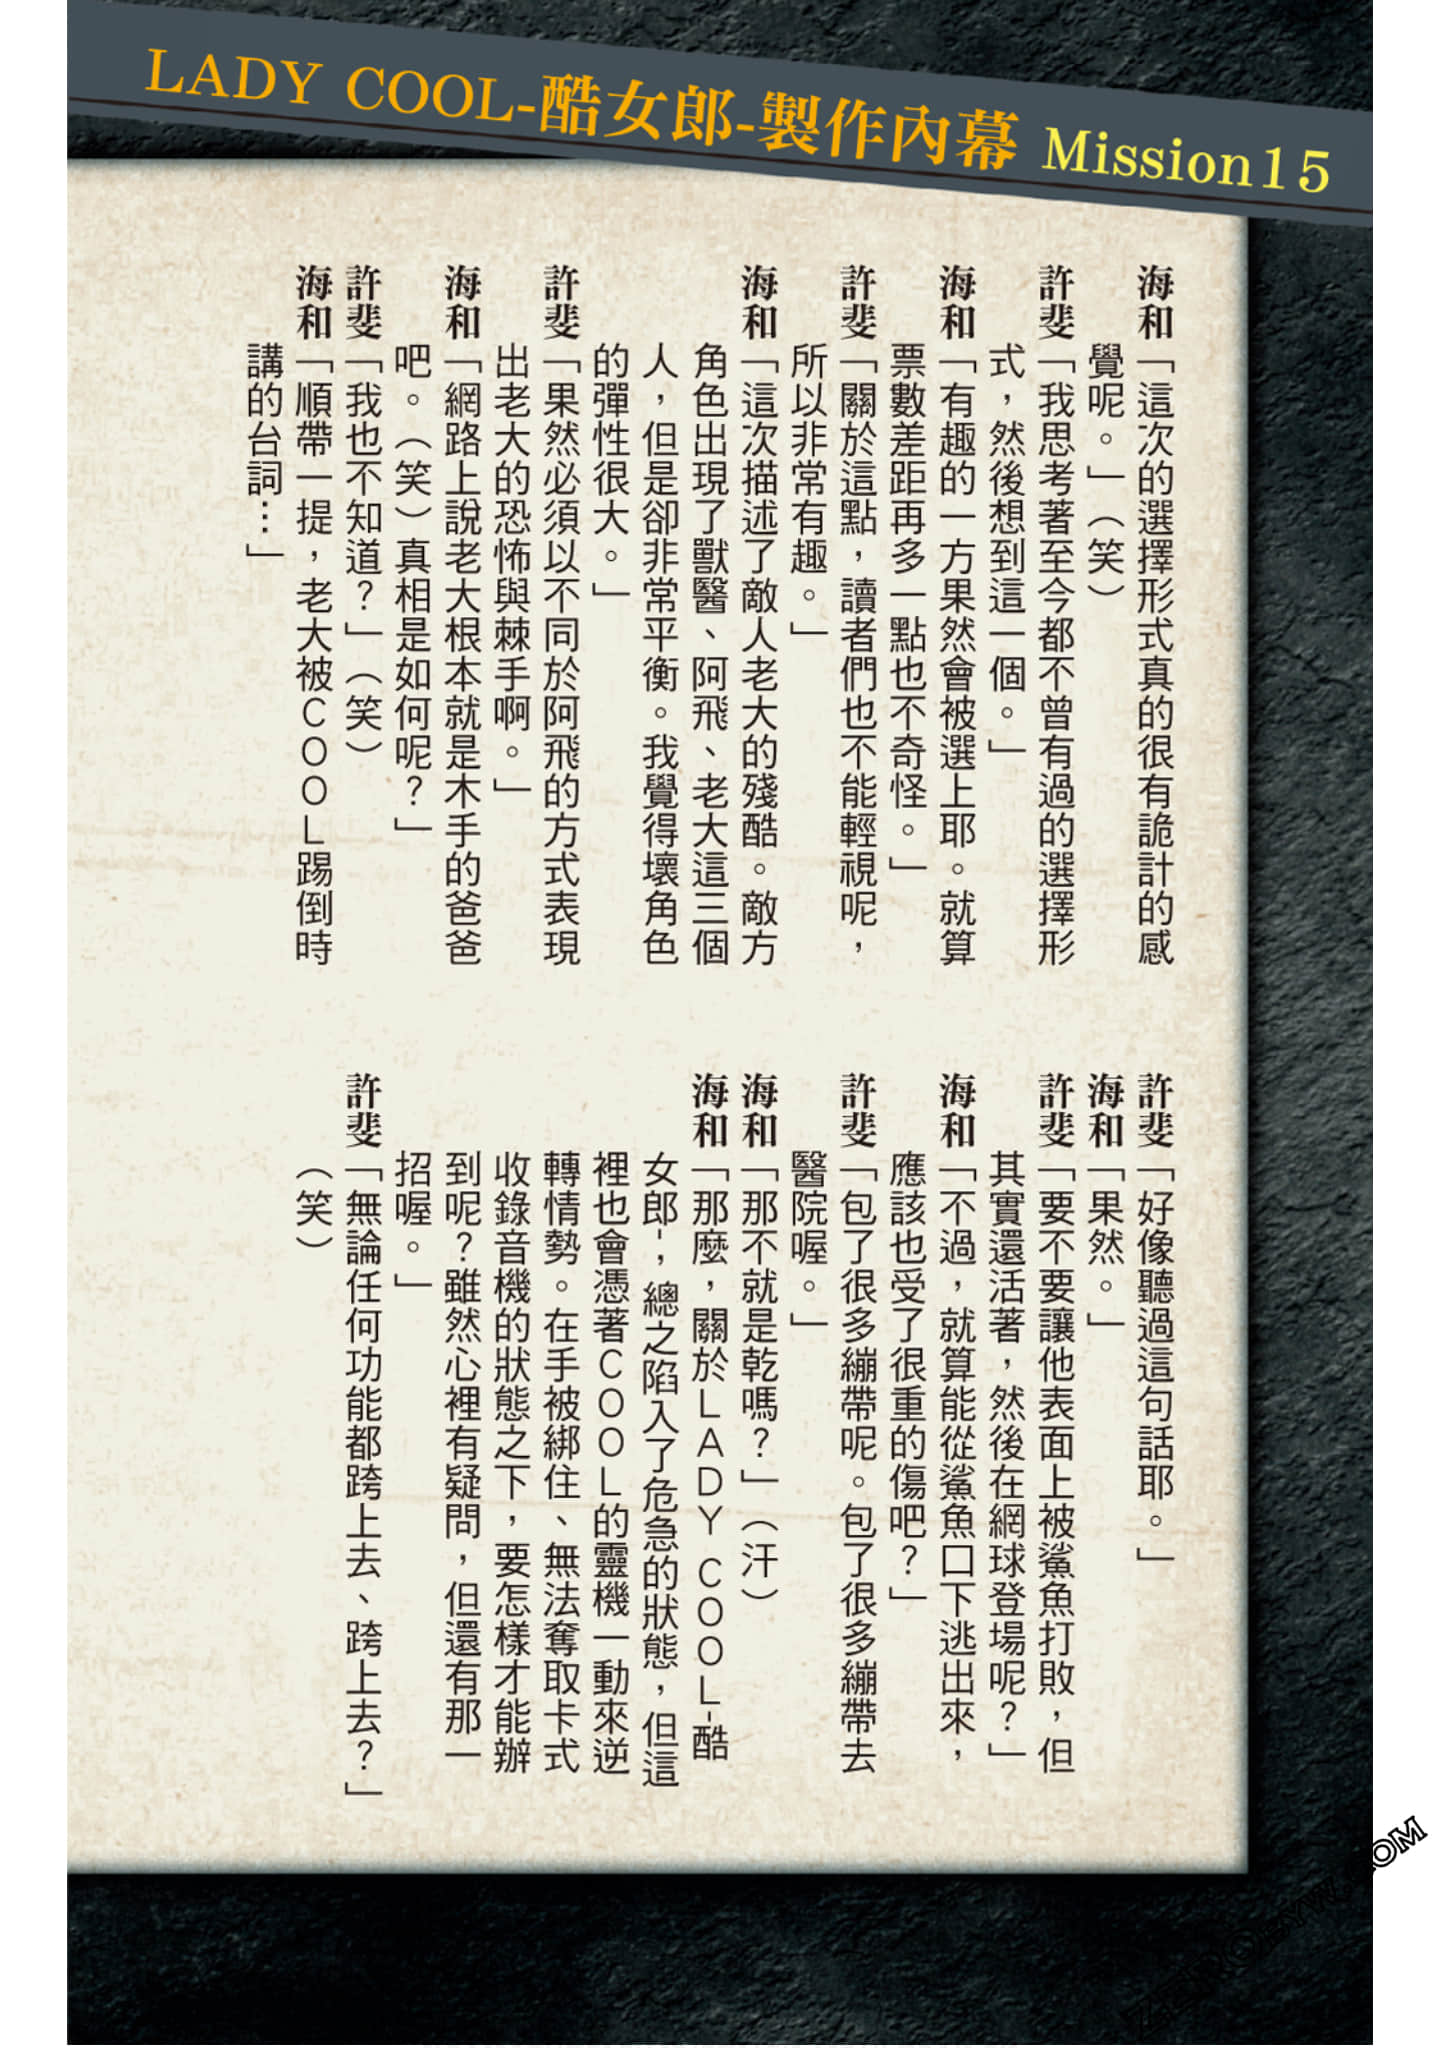 LADY COOL-酷女郎-製作內幕 Mission15
海和「這次的選擇形式真的很有詭計的感
覺呢。」（笑）
許斐「我思考著至今都不曾有過的選擇形
式，然後想到這一個。」
海和「有趣的一方果然會被選上耶。就算
票數差距再多一點也不奇怪。」
許斐「關於這點，讀者們也不能輕視呢，
所以非常有趣。」
海和「這次描述了敵人老大的殘酷。敵方
角色出現了獸醫、阿飛、老大這三個
人，但是卻非常平衡。我覺得壞角色
的彈性很大。」
許斐「果然必須以不同於阿飛的方式表現
出老大的恐怖與棘手啊。」
海和「網路上說老大根本就是木手的爸爸
吧。（笑）真相是如何呢？」
許斐「我也不知道？」（笑）
海和「順帶一提，老大被ＣＯＯＬ踢倒時
講的台詞…」
許斐「好像聽過這句話耶。」
海和「果然。」
許斐「要不要讓他表面上被鯊魚打敗，但
其實還活著，然後在網球登場呢？」
海和「不過，就算能從鯊魚口下逃出來，
應該也受了很重的傷吧？」
許斐「包了很多繃帶呢。包了很多繃帶去
醫院喔。」
海和「那不就是乾嗎？」（汗）
海和「那麼，關於ＬＡＤＹ ＣＯＯＬ-酷
女郎-，總之陷入了危急的狀態，但這
裡也會憑著ＣＯＯＬ的靈機一動來逆
轉情勢。在手被綁住、無法奪取卡式
收錄音機的狀態之下，要怎樣才能辦
到呢？雖然心裡有疑問，但還有那一
招喔。」
許斐「無論任何功能都跨上去、跨上去？」
（笑）